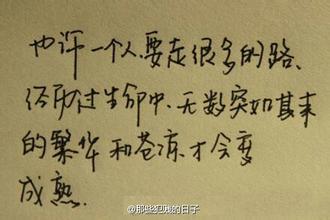 也许一个人,要走很多的路、
经历过生命中、无数突如其来
的繁华和苍凉.才会变
成熟.
@那些犯贱的日子